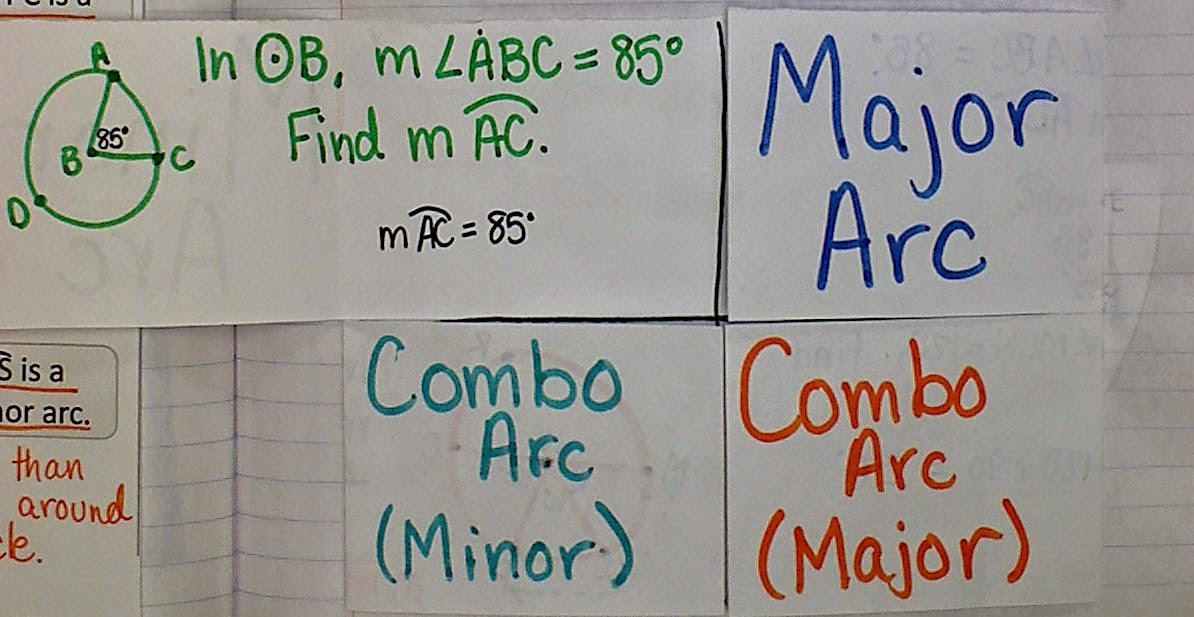 A
B 85° C
D
In ⊙B, m∠ABC = 85°
Find m AC.
mAC = 85°
Major
Arc
S is a
or arc.
than
around
Combo
Arc
(Minor)
Combo
Arc
(Major)